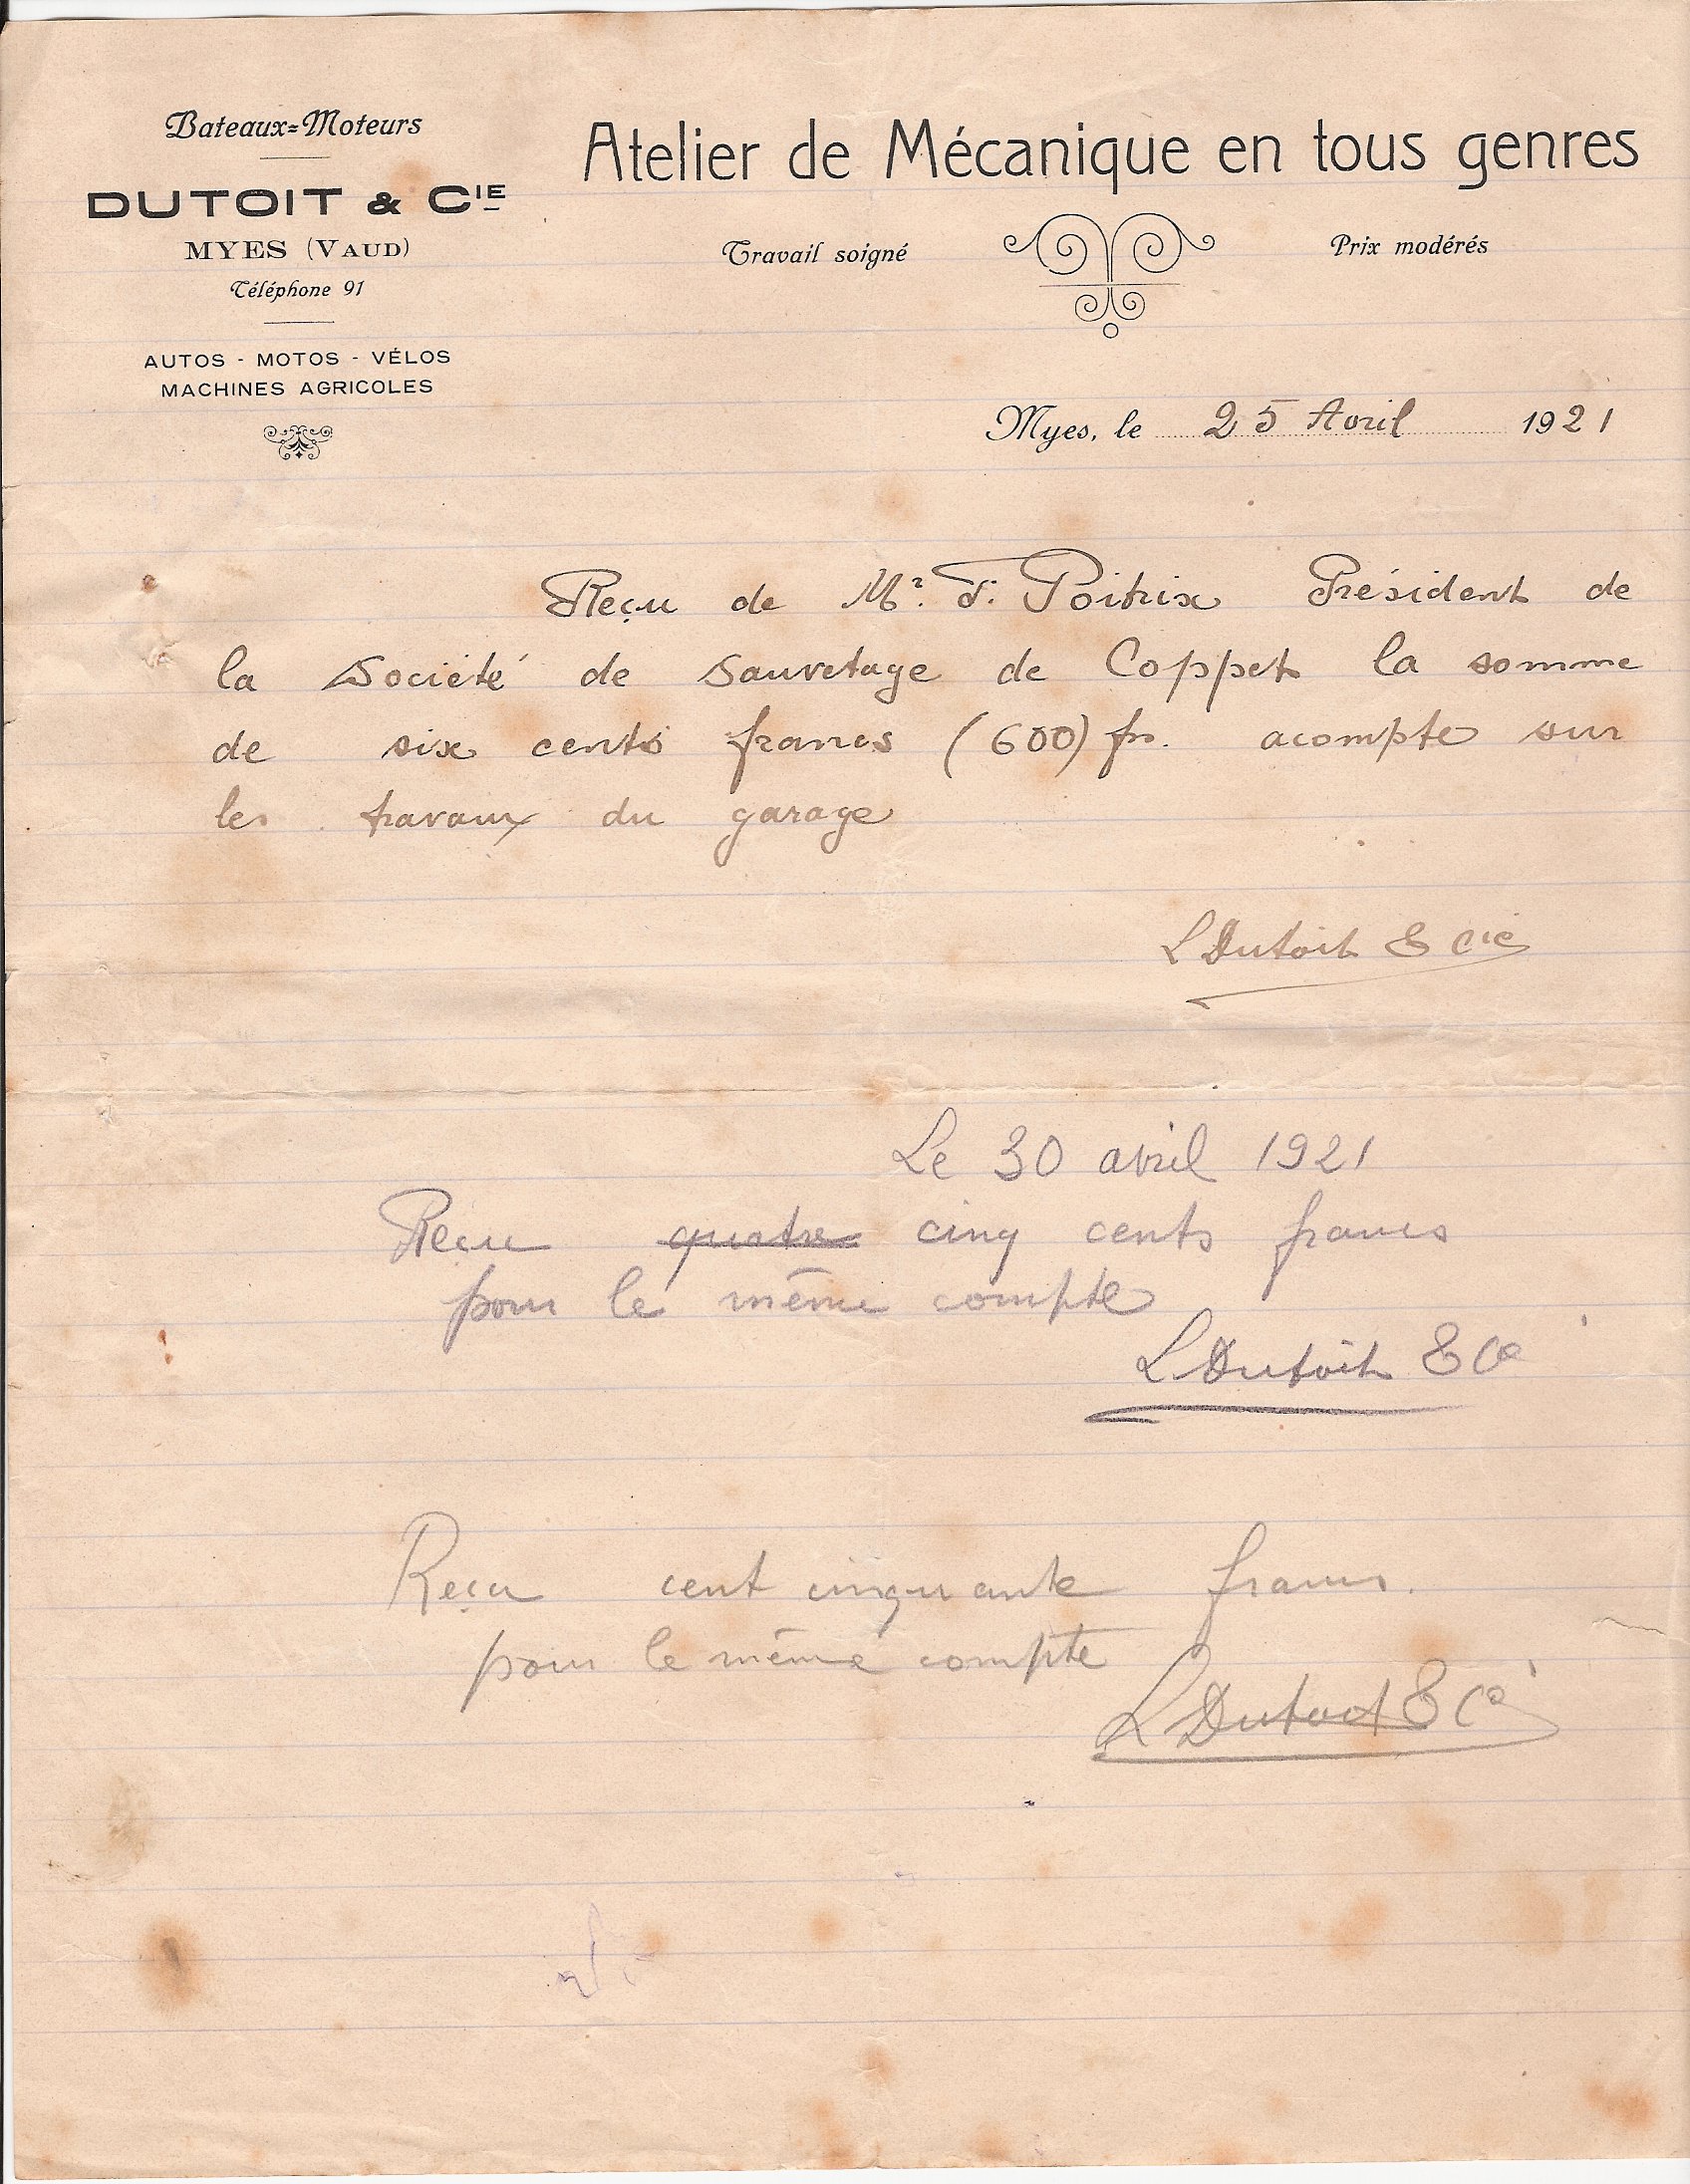 Bateaux=Moteurs
DUTOIT & CIE
MYES (VAUD)
Téléphone 91
AUTOS - MOTOS - VÉLOS
MACHINES AGRICOLES
Atelier de Mécanique en tous genres
Travail soigné Prix modérés
Myes, le 25 Avril 1921
Reçu de Mr. F. Poitrix Président de
la Société de Sauvetage de Coppet la somme
de six cents francs (600) frs. acompte sur
les travaux du garage
L Dutoit & Cie
Le 30 avril 1921
Recu quatre cinq cents francs
pour le même compte
L Dutoit & Ce
Reçu cent cinquante francs.
pour le même compte
L Dutoit & Ce